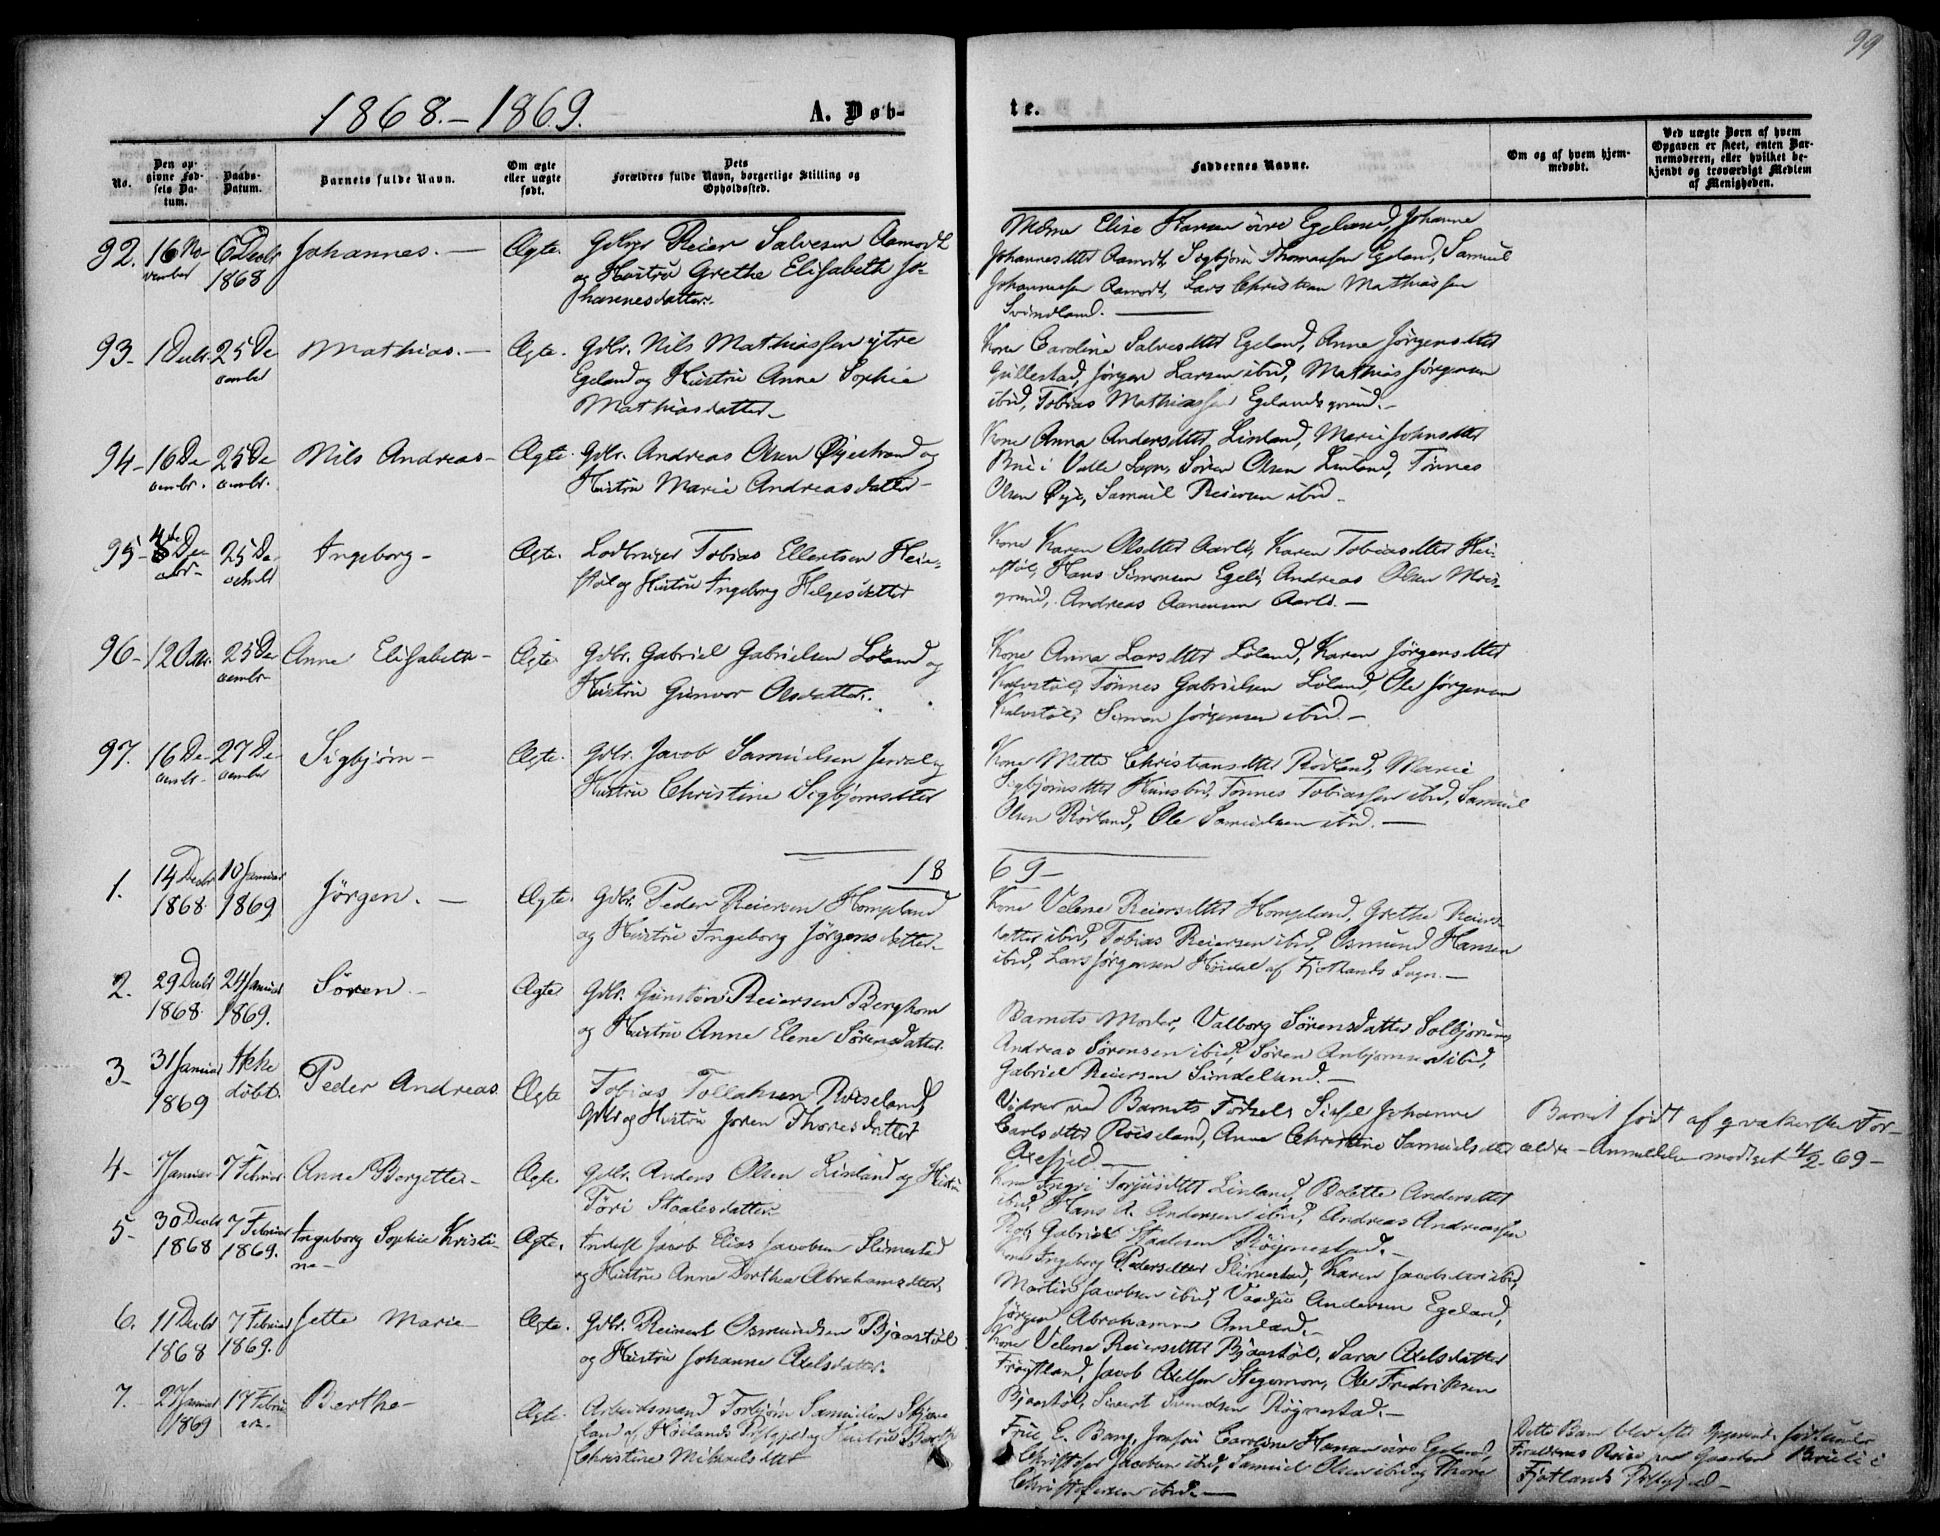 99
1868.-1869.
A. Døb-
te.
No.
Den op-
givne Fød-
sels Da-
tum.
Daabs-
Datum.
Barnets fulde Navn.
Om ægte
eller uægte
født.
Dets
Forældres fulde Navn, borgerlige Stilling og
Opholdssted.
Faddernes Navne.
Om og af hvem hjem-
medøbt.
Ved uægte Børn af hvem
Opgaven er skeet, enten Bar-
nemoderen, eller hvilket be-
kjendt og troværdigt Medlem
af Menigheden.
92. 16 No- 6 Decbr Johannes. — Ægte. Gdbr. Reier Salvesen Aamodt
vember 1868 og Hustru Grethe Elisabeth Jo-
hannesdatter.
Elise Hansen øvre Egeland, Johanne
Johannesdtter Aamodt, Sigbjørn Thomassen Egeland, Samuel
Johannesen Aamodt, Lars Christian Mathiassen
Svindland. —
93- 1 Decbr. 25 De Mathias. — Ægte. Gdbr. Nils Mathiassen ytre
cember Egeland og Hustru Anne Sophie
Mathiasdatter-
Kone Caroline Salvesdtter Egeland, Anne Jørgensdtter
Gullestad, Jørgen Larsen ibid, Mathias Jørgensen
ibid, Tobias Mathiassen Egelandsgrund.-
94- 16 De 25 De Nils Andreas- Ægte. Gdbr. Andreas Olsen Øyestrand og
cembr. cembr. Hustru Marie Andreasdatter-
Kone Anna Andersdtter Linland, Marie Johnsdtter
Brue i Valle Sogn, Søren Olsen Linland, Tønnes
Olsen Øye, Samuel Reiersen ibid-
95- 4de De- 25 De Ingeborg- Ægte. Lodbruger Tobias Ellertsen Hei-
cbr- cembr støl og Hustru Ingeborg Helgesdatter
Kone Karen Olsdtter Aarli, Karen Tobiasdtter Hei-
støl, Hans Simonsen Egeli, Andreas Olsen Mois-
grund, Andreas Aanensen Aarli. —
96- 12 25 De Anne Elisabeth- Ægte. Gdbr. Gabriel Gabrielsen Løland og
cembr- Hustru Gunvor Olsdatter.
Kone Anna Larsdtter Løland, Karen Jørgensdtter
Kalvstøl, Tønnes Gabrielsen Løland, Ole Jørgensen
Kalvstøl, Simon Jørgensen ibid.-
97. 16 De- 27 De- Sigbjørn- Ægte. Gdbr. Jacob Samuelsen og
cembr- cember Hustru Christine Sigbjørnsdtter
Kone Mette Christiansdtter Rørland, Marie
Sigbjørnsdtter Hunsbed, Tønnes Tobiassen ibid, Samuel
Olsen Rørland, Ole Samuelsen ibid. —
1869-
1. 14 Decbr 10 Januar Jørgen. — Ægte. Gdbr. Peder Reiersen Kompland
1868 1869 og Hustru Ingeborg Jørgensdatter-
Kone Velene Reiersdtter Kompland, Grethe Reiers-
datter ibid, Tobias Reiersen ibid, Osmund Hansen
ibid, Lars Jørgensen af Fjotlands Sogn.-
2. 29 Decbr 24 Januar Søren.- Ægte Gdbr. Gunsten Reiersen Berghom
1868 1869. og Hustru Anne Elene Sørensdatter.
Barnets Moder, Valborg Sørensdatter Solbjørnnes,
Andreas Sørensen ibid, Søren ibid,
Gabriel Reiersen Sindeland.—
3- 31 Januar Ikke Peder Andreas Ægte Tobias Tollaksen Røiseland
1869 døbt. Gdbr og Hustru Joren Thoresdatter
Vidner ved Barnets Fødsel: Sissel Johanne
Carlsdtter Røiseland, Anne Christine Samuelsdtter
Axefjeld.
Barnet født af qvækerske For-
ældre - Anmeldelse modtaget 4/2 69-
4- 7 Januar 7 Februar Anne Borgitte- Ægte. Gdbr. Anders Olsen Linland og Hustru
Tóri Staalesdatter.
Kone Ingri Torjusdtter Linland, Bolette Andersdtter
ibid, Hans A. Andersen ibid, Andreas Andreassen
Gabriel Staalesen Røynestad.-
5- 30 Decbr 7 Februar Ingeborg Sophie Kristi- Ægte. Inderst Jacob Elias Jacobsen Slimestad
1868 1869. ne- og Hustru Anne Dorthea Abrahamsdtter.
Kone Ingeborg Pedersdtter Slimestad, Karen Jacobsdtter ibid,
Martin Jacobsen ibid, Andersen Egeland,
Jørgen Abrahamsen Omland.-
6. 11 Decbr 7 Februar Jette Marie- Ægte. Gdbr. Reinert Osmundsen Bjaastøl
1868 1869. og Hustru Johanne Axelsdatter.
Kone Velene Reiersdtter Bjaastøl, Sara Axelsdatter
Frøytland, Jacob Axelsen Stegemoen, Ole Fredriksen
Bjaastøl, Sivert Svendsen Røynestad.-
7. 27 Januar 17 Februar Berthe- Ægte. Arbeidsmand Torbjørn Samuelsen
1869 land af Høilands Præstegjeld og Hustru Berthe
Christine Mikaelsdtter
Frue E. Bang, Jomfru Caroline Hansen øvre Egeland,
Christopher Jacobsen ibid, Samuel Olsen ibid og Thore
Christophersen ibid.-
Dette Barn blev efter Opgivende født under
Forældrenes Reise paa Gaarden i
Fjotlands Præstegjeld-